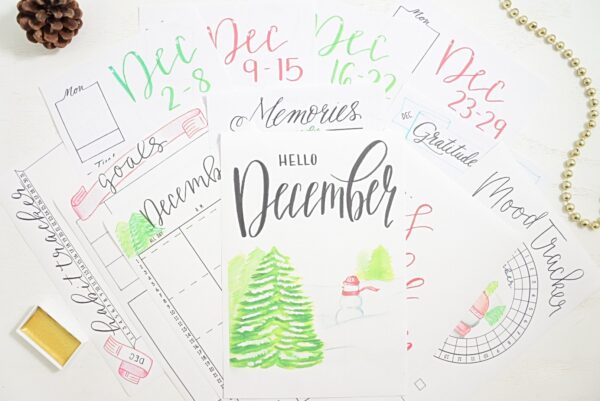 Dec
2-8
Dec
9-15
Dec
16-22
Dec
23-29
Mon
Mon
Memories
DEC
Gratitude
goals
December
HELLO
December
Mood Tracker
habit tracker
DEC